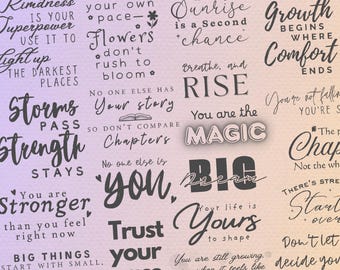 Kindness
IS YOUR
Superpower
USE IT TO
Light up
THE DARKEST
PLACES
Storms
PASS
Strength
STAYS
You are
Stronger
than you feel
right now
BIG THINGS
START WITH SMALL
your own
pace
Flowers
don't
rush to
bloom
NO ONE ELSE HAS
Your story
SO DON'T COMPARE
Chapters
No one else is
YOU
Trust
your
Sunrise
is a Second
chance
Breathe, and
RISE
You are the
MAGIC
Dream
BIG
Your life is
Yours
to shape
You are still growing,
Growth
BEGINS
WHERE
Comfort
ENDS
You're not
The
Chap
Not the wh
THERE'S STRE
Start
over
Don't let
decide you